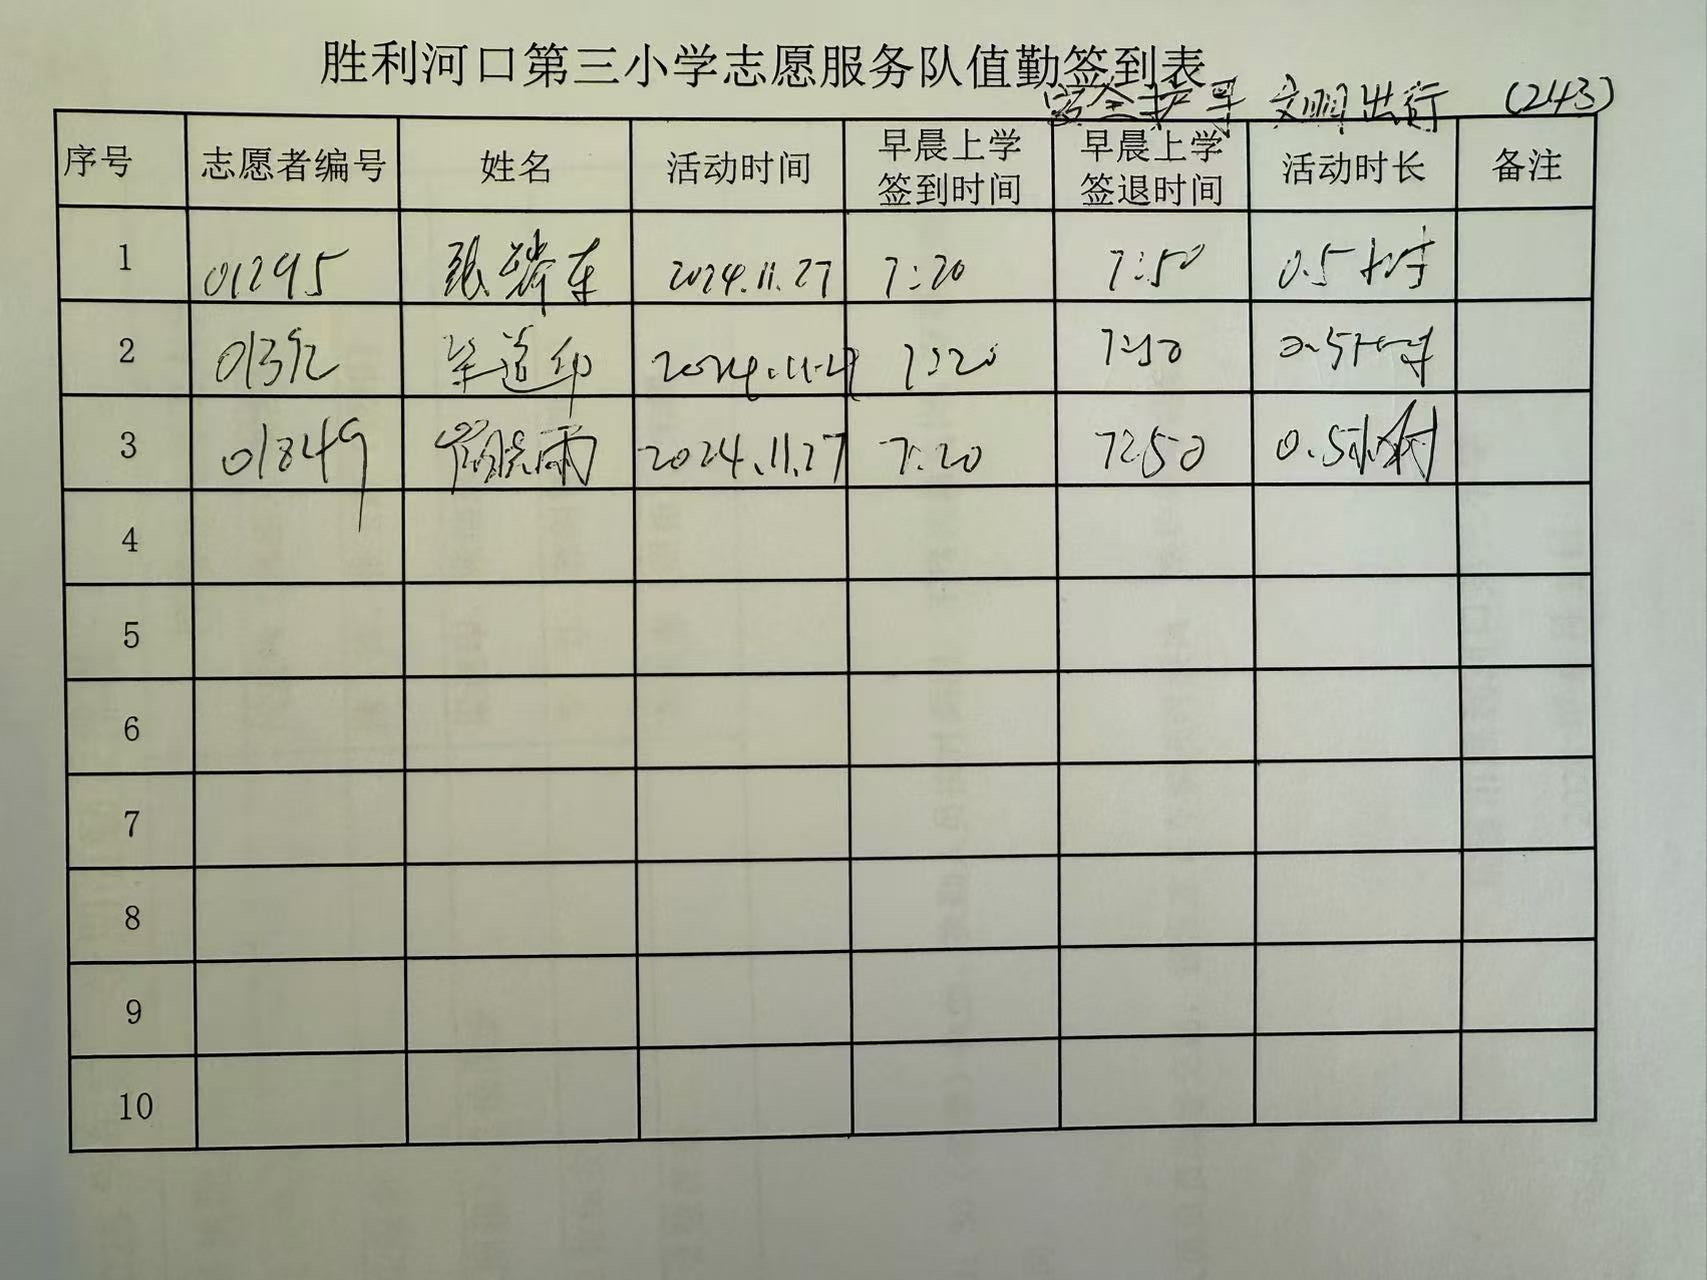 胜利河口第三小学志愿服务队值勤签到表
安全护学 文明出行 (243)
序号 志愿者编号 姓名 活动时间 早晨上学签到时间 早晨上学签退时间 活动时长 备注
1 01295 张瑞东 2024.11.27 7:20 7:50 0.5小时
2 01392 毕道印 2024.11.27 7:20 7:50 0.5小时
3 01849 崔晓雨 2024.11.27 7:20 7:50 0.5小时
4
5
6
7
8
9
10